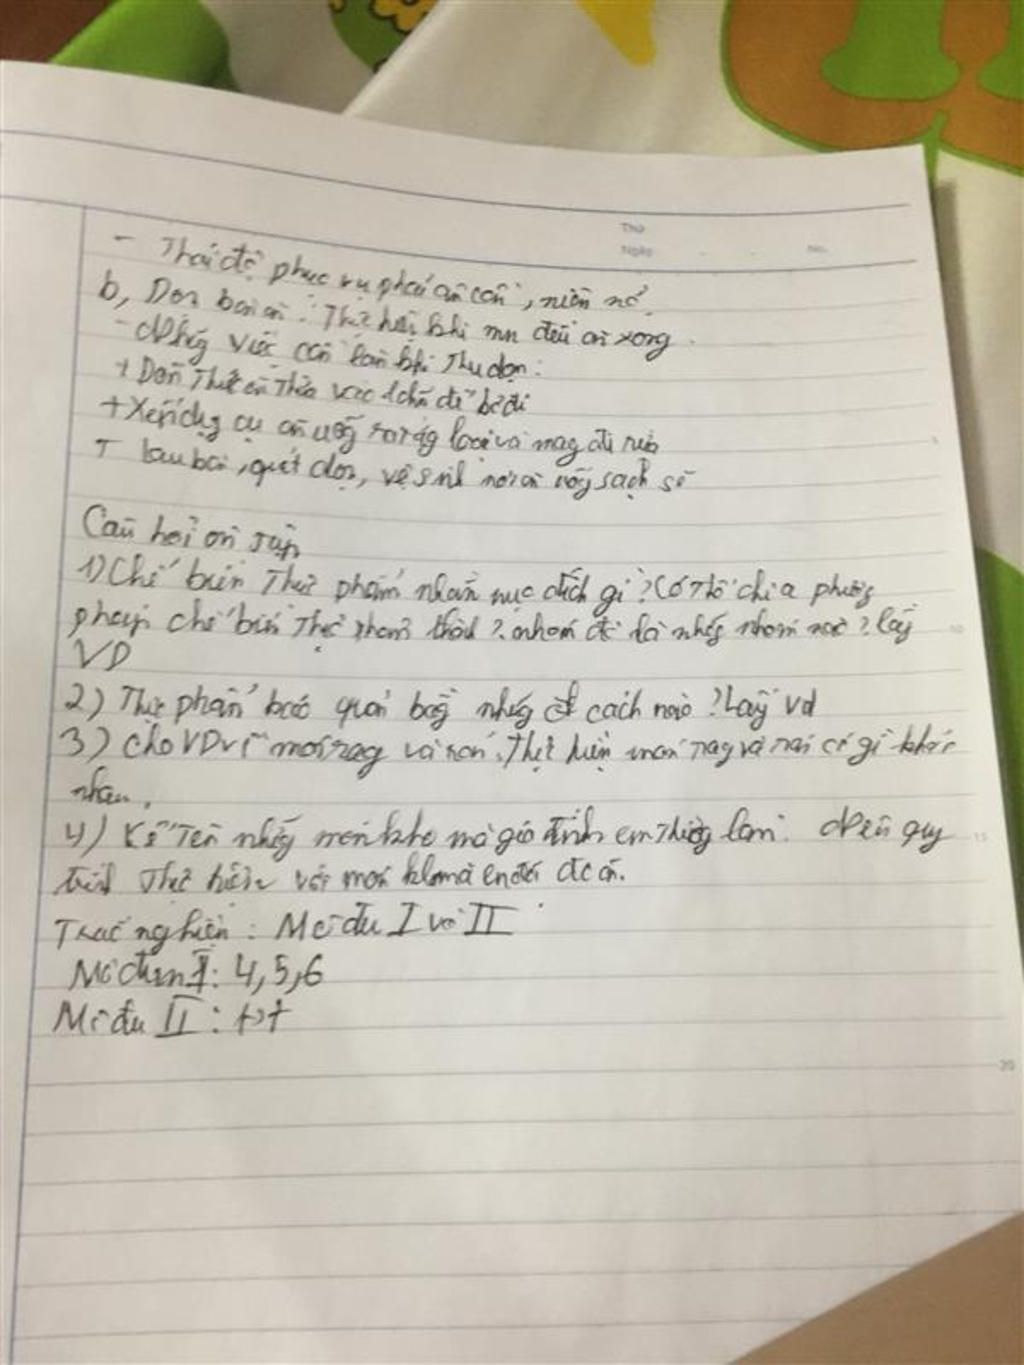 Thứ
Ngày No.
- Thái độ phục vụ phải ân cần, niềm nở.
b, Dọn bàn ăn: Thực hiện khi mn đều ăn xong.
- Những việc cần làm khi thu dọn:
+ Dồn thức ăn thừa vào 1 chỗ để bỏ đi
+ Xếp dụng cụ ăn uống theo từng loại và mang đi rửa
+ lau bàn, quét dọn, vệ sinh nơi ăn uống sạch sẽ
Câu hỏi ôn tập
1) Chế biến thực phẩm nhằm mục đích gì? Có thể chia phương
pháp chế biến thực phẩm thành ? nhóm đó là những nhóm nào? lấy
VD
2) Thực phẩm bảo quản bằng những cách nào? Lấy vd
3) cho VD về món rang và rán. Thực hiện món rang và rán có gì khác
nhau.
4) Kể tên những món kho mà gia đình em thường làm. Nêu quy
trình thực hiện với món kho mà em đã đc ăn.
Trắc nghiệm: Mô đu I và II
Mô đun I: 4,5,6
Mô đu II:
20